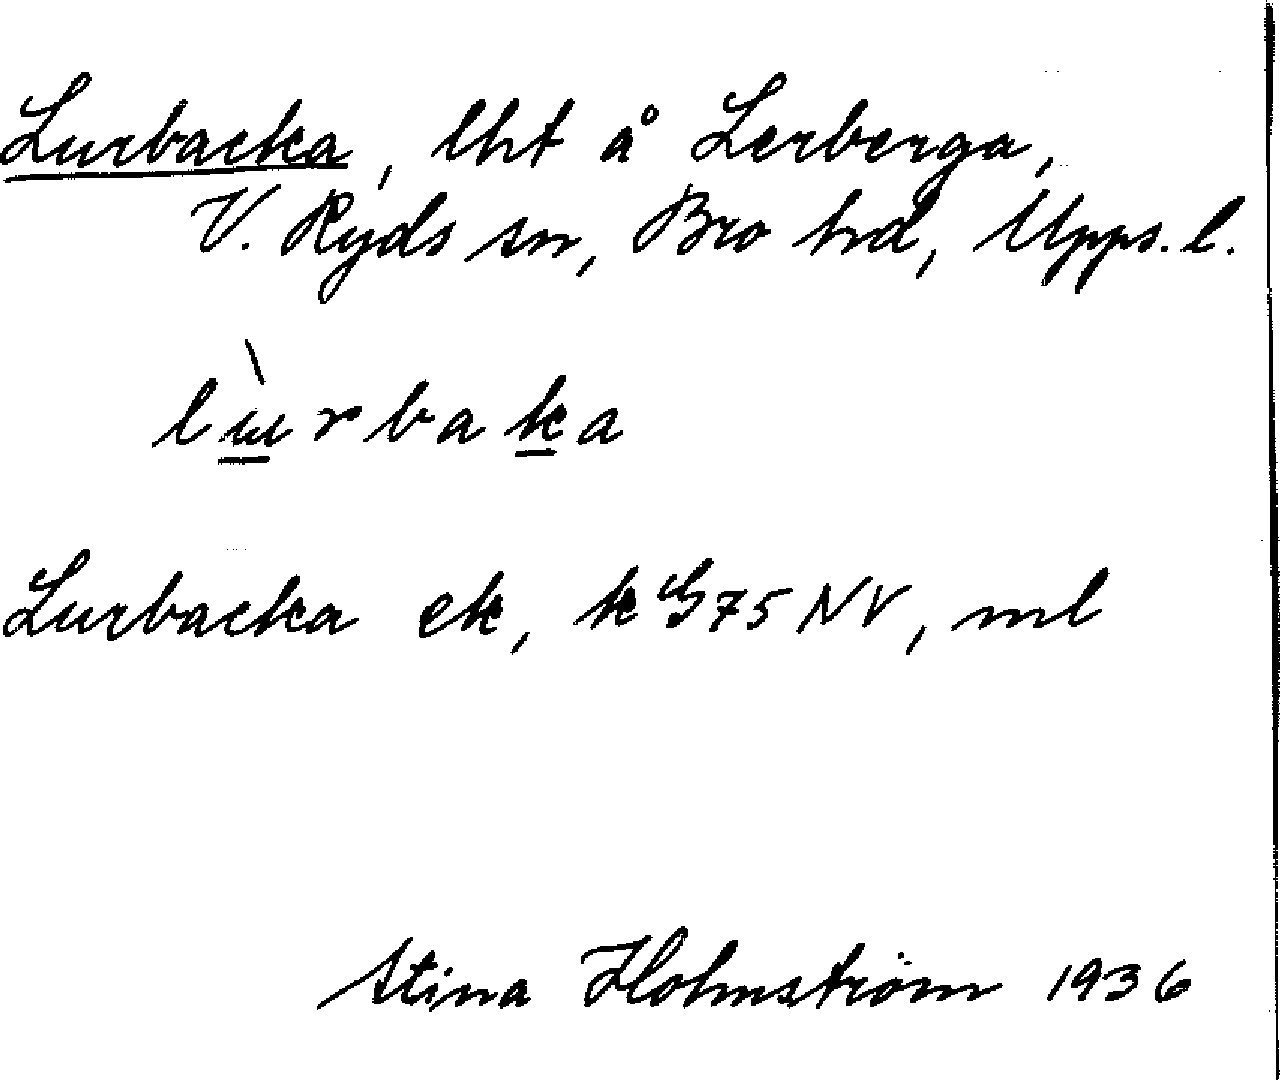 Lurbacka, lht å Lerberga,
V. Ryds sn, Bro hd, Upps. l.
lɯ̀rbaka
Lurbacka ek, k G75 NV, ml
Stina Holmström 1936